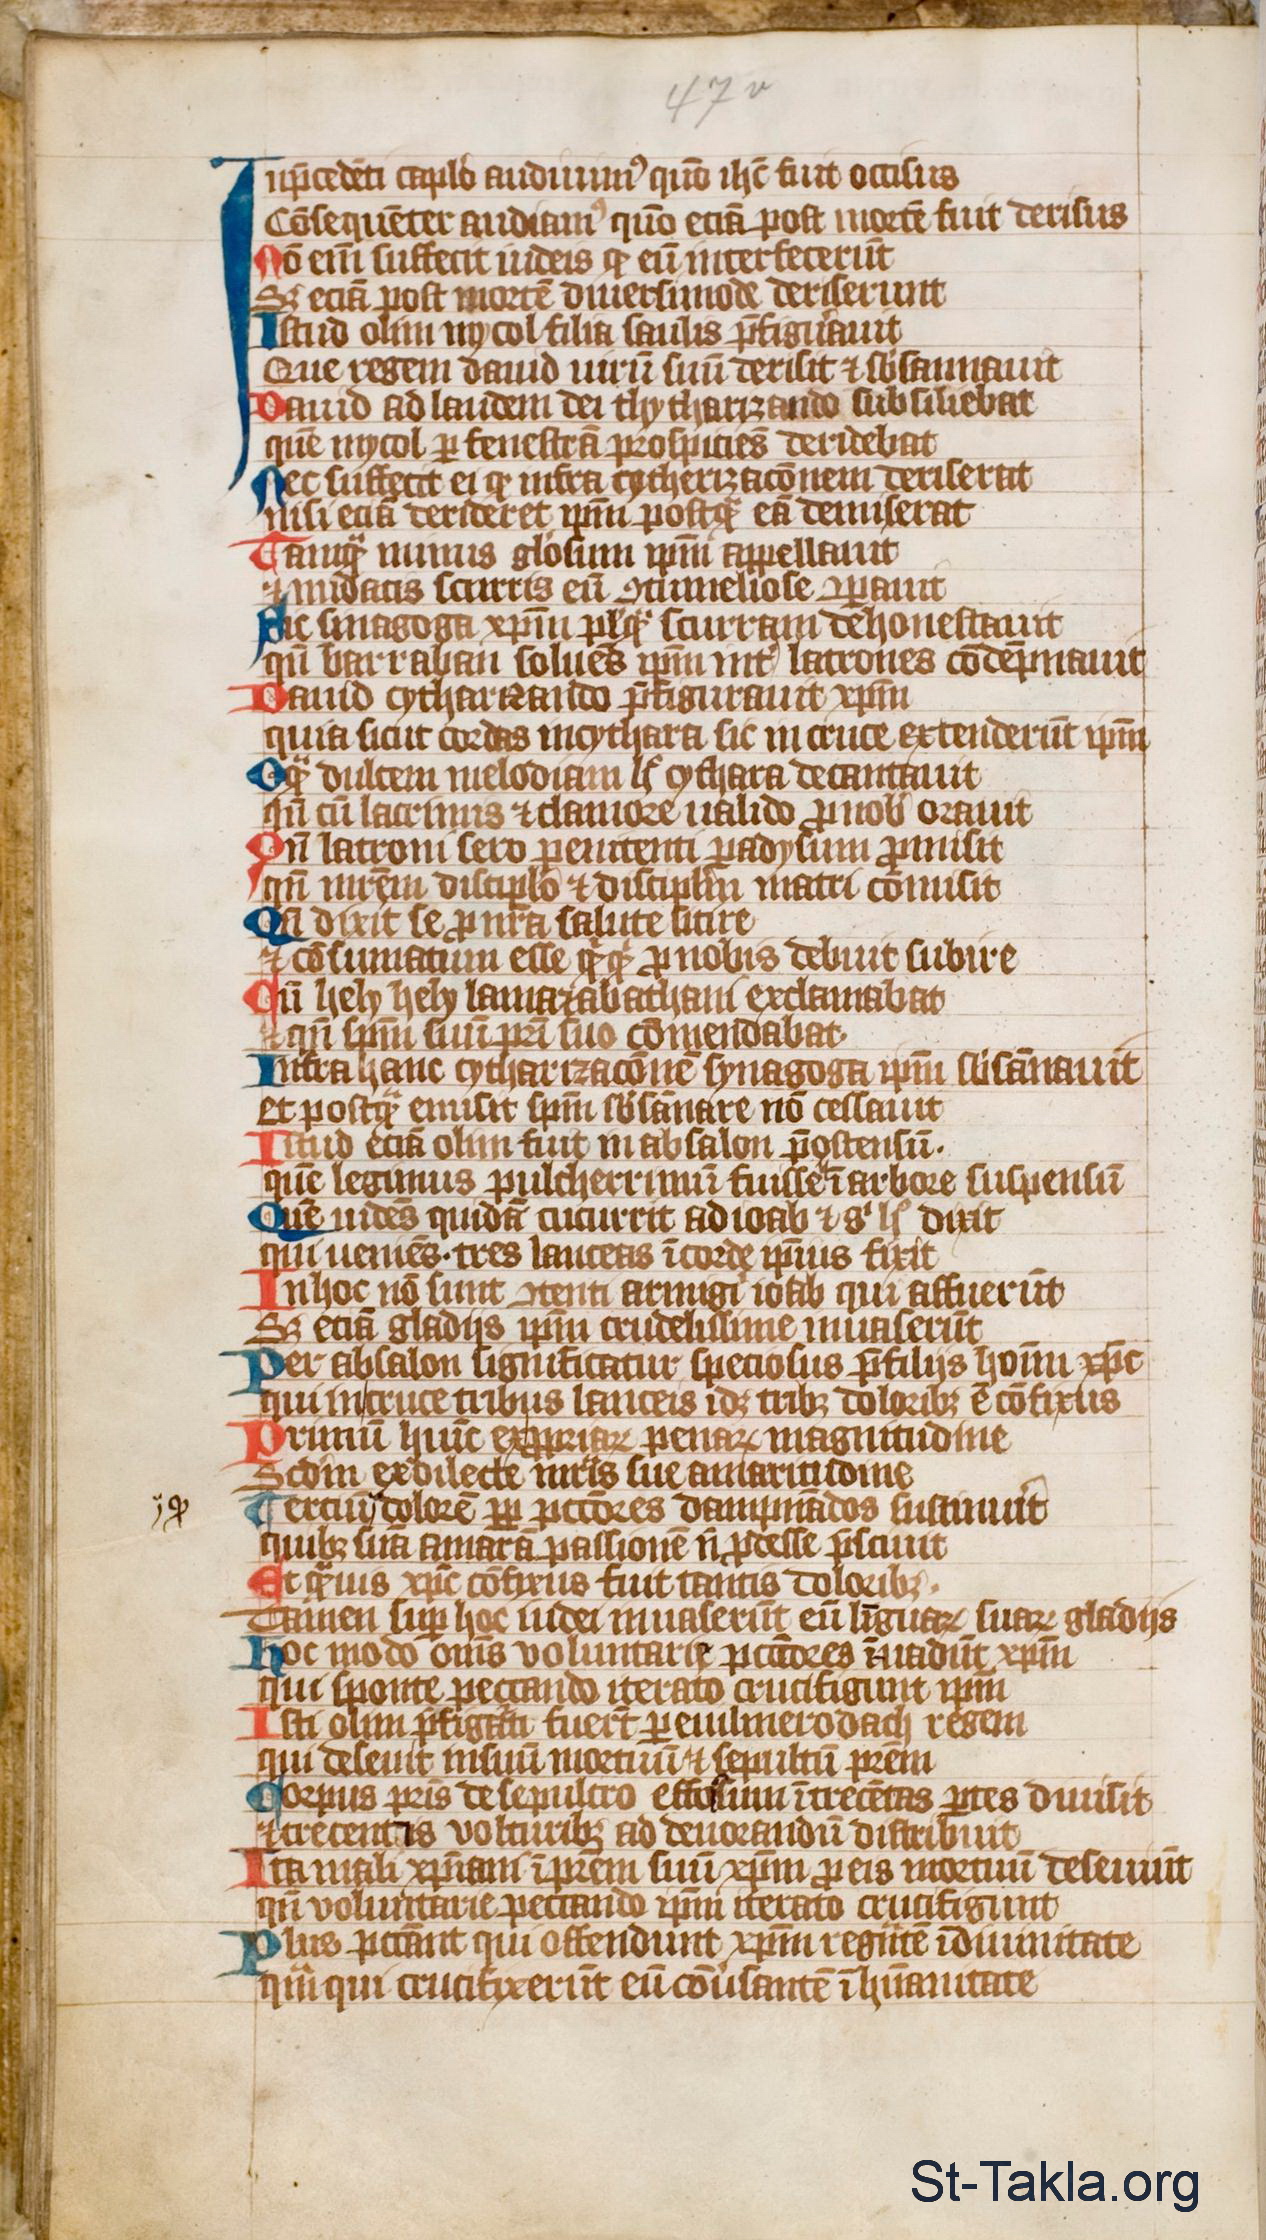 47v
In p̄cedēti capl'o audiuim⁹ quō ih̄c fuit occisus
Cōsequēter audiam⁹ quō eciā post mortē fuit derisus
Nō em̄ suffecit iudeis ꝙ eū interfecerūt
Sꝫ eciā post mortē diuersimode deriserunt
Istud olim mycol filia saulis p̄figurauit
Que regem dauid uirū suū derisit ⁊ sb'sannauit
Dauid ad laudem dei thytharizando subsiliebat
quē mycol ꝑ fenestrā prospiciēs deridebat
Nec suffecit ei ꝙ infra cytherizacōnem deriserat
nisi eciā derideret ip̄m postqͣ eā demiserat
Tamqͣ mimus glosum ip̄m appellauit
⁊ nudatis scurris eū ꝯtumeliose ꝯꝑauit
Sic sinagoga xp̄m pl'qͣ scurram dehonestauit
qn̄ barraban soluēs ip̄m int' latrones cōdēpnauit
Dauid cytharizando p̄figurauit xp̄m
quia sicut cordas in cythara sic in cruce extenderūt ip̄m
Oqͣ dulcem melodiam h' cythara decantauit
qn̄ cū lacrimis ⁊ clamore ualido ꝓ nob' orauit
Qn̄ latroni sero penitenti ꝑadysum ꝓmisit
qn̄ mr̄em discipl'o ⁊ discipl'm matri cōmisit
Qn̄ dixit se ꝓ nr̄a salute sitire
⁊ cōsumatum esse qͣqͣ ꝓ nobis debuit subire
Qn̄ hely hely lamazabathani exclamabat
⁊ qn̄ sp̄m suū pr̄i suo cōmendabat.
Infra hanc cytharizacōnē synagoga ip̄m sb'sānauit
Et postqͣ emisit sp̄m sb'sānare nō cessauit
Istud eciā olim fuit in absalon p̄ostensū.
quē legimus pulcherrimū fuisse ī arbore suspensū
Quē uidēs quidā cucurrit ad ioab ⁊ s' h' dixit
qui ueniēs. tres lanceas ī corde ip̄ius fixit
In hoc nō sunt ꝯtenti armigi' ioab qui affuerūt
Sꝫ eciā gladijs ip̄m crudelissime inuaserūt
Per absalon significatur speciosus p̄ filijs hoīm xp̄c
qui in cruce tribus lanceis idꝫ tribꝫ doloribꝫ ē cōfixus
Primū huīc ex ꝓpriaꝝ penaꝝ magnitudine
Scd̄m ex dilecte mr̄is sue amaritudine
Terciū dolorē ꝓp pcc̄ores dampnādos sustinuit
quibꝫ suā amarā passionē n̄ ꝓdesse p̄sciuit
Et qͣuis xp̄c cōfixus fuit tantis doloribꝫ.
Tamen sup hoc iudei inuaserūt eū līguaꝝ suaꝝ gladijs
hoc modo om̄s voluntarie pcc̄ores īuadūt xp̄m
qui sponte peccando iterato crucifigunt ip̄m
Isti olim p̄figͣti fuer̄t ꝑ euilmerodach regem
qui deseuit in suū mortuū ⁊ sepultū pr̄em
Corpus pr̄is de sepulcro effossum ī trecētas ꝑtes diuisit
⁊ trecentis volturibꝫ ad deuorandū distribuit
Ita mali xp̄iani ī pr̄em suū xp̄m ꝓ eis mortuū deseuiūt
qn̄ voluntarie peccando ip̄m iterato crucifigunt
Plus pcc̄ant qui offendunt xp̄m regn̄tē ī diuinitate
qͣm qui crucifixerūt eū cōu'santē ī hūanitate
St-Takla.org